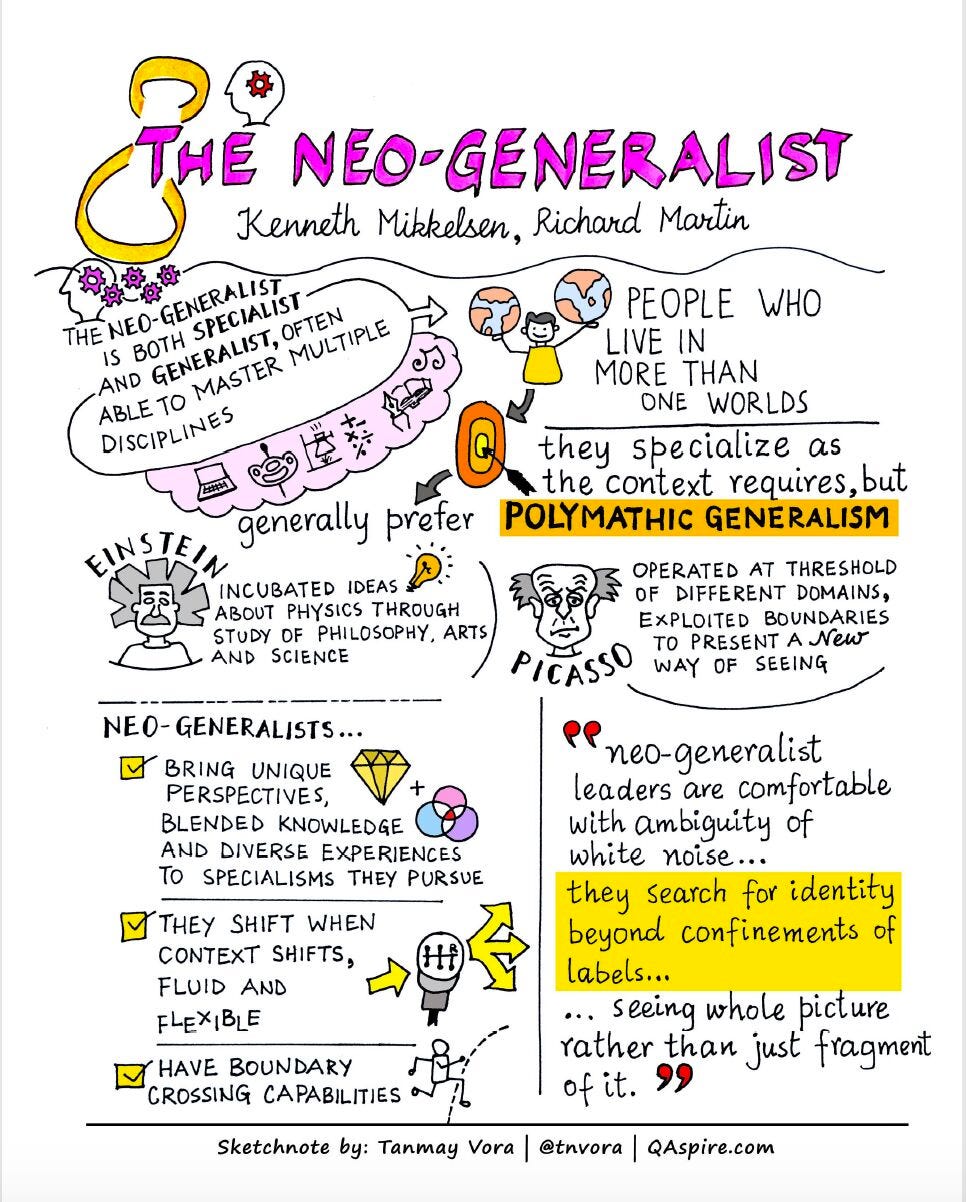 THE NEO-GENERALIST
Kenneth Mikkelsen, Richard Martin
THE NEO-GENERALIST
IS BOTH SPECIALIST
AND GENERALIST, OFTEN
ABLE TO MASTER MULTIPLE
DISCIPLINES
PEOPLE WHO
LIVE IN
MORE THAN
ONE WORLDS
they specialize as
the context requires, but
generally prefer
POLYMATHIC GENERALISM
EINSTEIN
INCUBATED IDEAS
ABOUT PHYSICS THROUGH
STUDY OF PHILOSOPHY, ARTS
AND SCIENCE
PICASSO
OPERATED AT THRESHOLD
OF DIFFERENT DOMAINS,
EXPLOITED BOUNDARIES
TO PRESENT A New
WAY OF SEEING
NEO-GENERALISTS...
BRING UNIQUE
PERSPECTIVES,
BLENDED KNOWLEDGE
AND DIVERSE EXPERIENCES
TO SPECIALISMS THEY PURSUE
THEY SHIFT WHEN
CONTEXT SHIFTS,
FLUID AND
FLEXIBLE
R
HAVE BOUNDARY
CROSSING CAPABILITIES
"neo-generalist
leaders are comfortable
with ambiguity of
white noise...
they search for identity
beyond confinements of
labels...
... seeing whole picture
rather than just fragment
of it. "
Sketchnote by: Tanmay Vora | @tnvora | QAspire.com